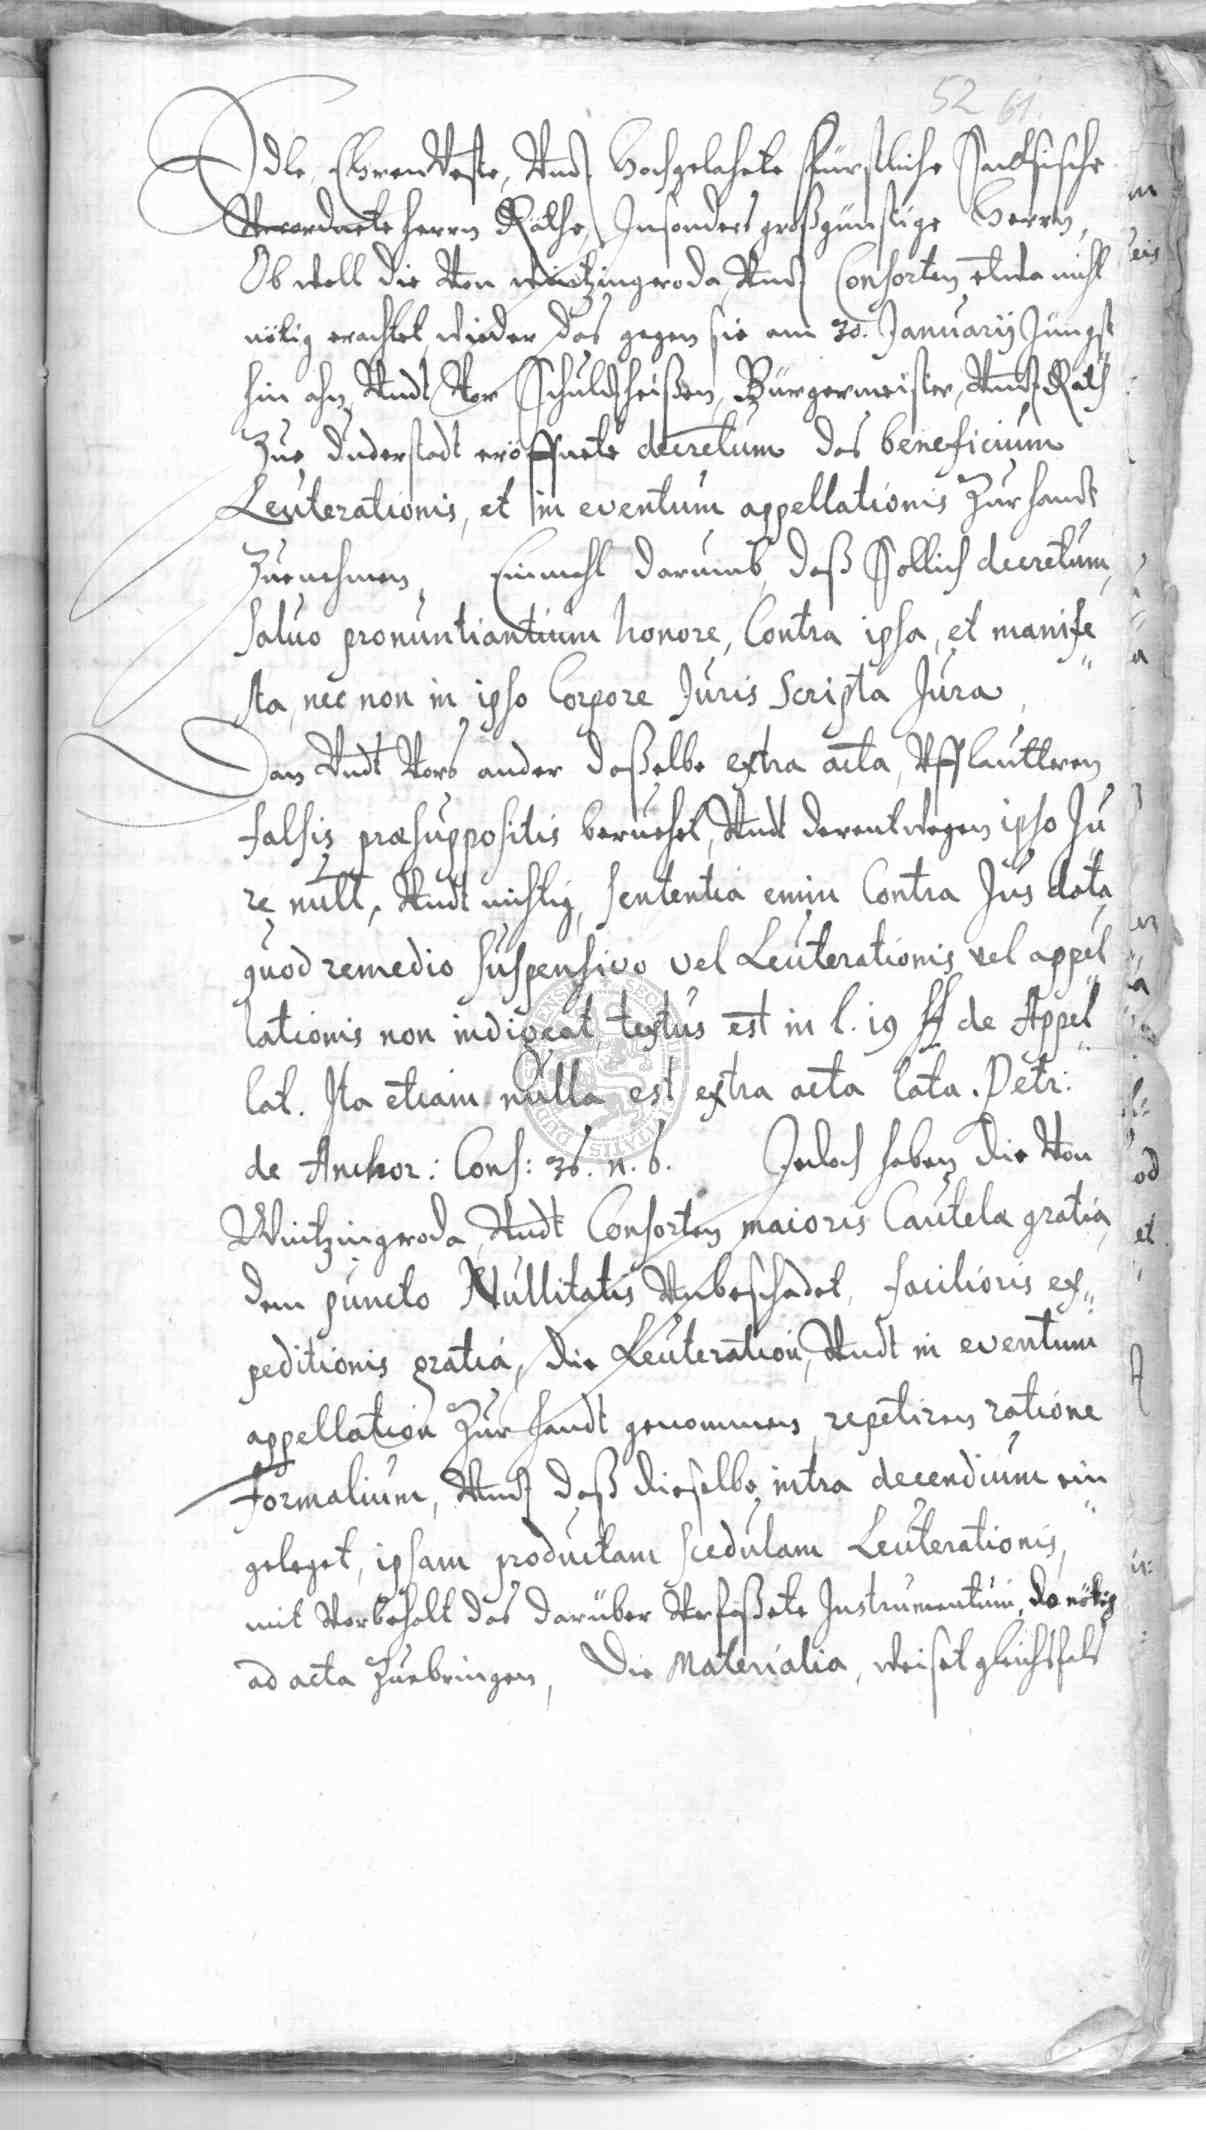 52 61.
Edle, Ehrenveste, Vndt Hochgelahrte Fürstliche Sächsische
Verordnete Herrn Räthe, Insonders großgünstige Herrn,
Ob woll die Von Wintzingeroda, Vndt Consorten etwa nicht
nötig erachtet, wieder das gegen sie am 30. Januarÿ Jüngst
hin ahn, Vndt Vor Schuldtheißen, Bürgermeister, Vndt Rath
Zue Duderstadt eröffnete decretum das beneficium
Leuterationis, et in eventum appellationis Zur handt
Zuenehmen, Einmahl darumb, daß Sollich decretum,
saluo pronuntiantium honore, Contra ipsa, et manife„
sta, nec non in ipso Corpore Juris Scripta Jura,
Dan Vndt Vors ander daßelbe extra acta, Vff lautteren
falsis praesuppositis beruehet, Vndt derentwegen ipso Ju„
re null, Vndt nichtig, sententia enim Contra Jus data,
quod remedio suspensivo vel Leuterationis vel appel„
lationis non indigeat, textus est in l. 19 ff de Appel„
lat. Ita etiam nulla est extra acta lata. Petr:
de Anchor: Cons: 36. n. 6. Jedoch haben die Von
Wintzingeroda, Vndt Consorten maioris Cautelæ gratia,
dem puncto Nullitatis Vnbeschadet, facilioris ex„
peditionis gratia, die Leuteration, Vndt in eventum
appellation Zur handt genommen, repetiren ratione
Formalium, Vndt daß dieselbe intra decendium ein„
geleget, ipsam productam scedulam Leuterationis,
mit Vorbehalt das darüber Verfaßete Instrumentum, do nötig
ad acta Zuebringen, Die Materialia, weiset gleichsfals